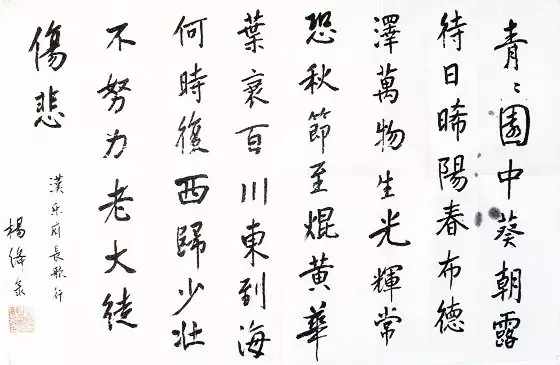 青〻園中葵朝露
待日晞陽春布德
澤萬物生光輝常
恐秋節至焜黄華
葉衰百川東到海
何時復西歸少壯
不努力老大徒
傷悲
漢乐府長歌行
楊绛录